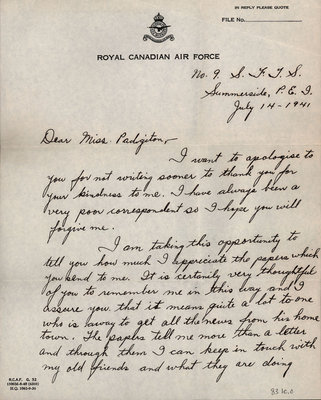 IN REPLY PLEASE QUOTE
FILE No.
ROYAL CANADIAN AIR FORCE
No. 9 S. F. T. S.
Summerside, P. E. I.
July 14 - 1941
Dear Miss. Padgiton,
I want to apologise to
you for not writing sooner to thank you for
your kindness to me. I have always been a
very poor correspondent so I hope you will
forgive me.
I am taking this opportunity to
tell you how much I appreciate the papers which
you send to me. It is certenily very thoughtful
of you to remember me in this way and I
assure you that it means quite a lot to one
who is away to get all the news from his home
town. The papers tell me more than a letter
and through them I can keep in touch with
my old friends and what they are doing
R.C.A.F. G. 32